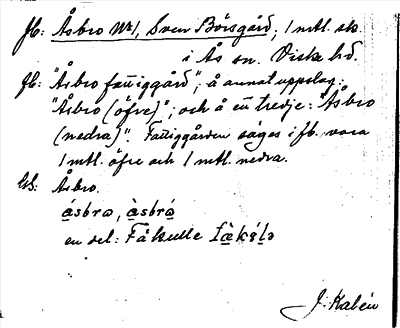 Jb: Åsbro Nr 1, Sven Börsgård, 1 mtl. sk.
i Ås sn. Viske hd.
Jb: "Åsbro fattiggård"; å annat uppslag:
"Åsbro (öfre)"; och å en tredje: "Åsbro
(nedra)". Fattiggården säges i jb. vara
1 mtl. öfre och 1 mtl. nedra.
Us: Åsbro.
åsbro, àsbrò
en del: Fåkulle
J. Kalén